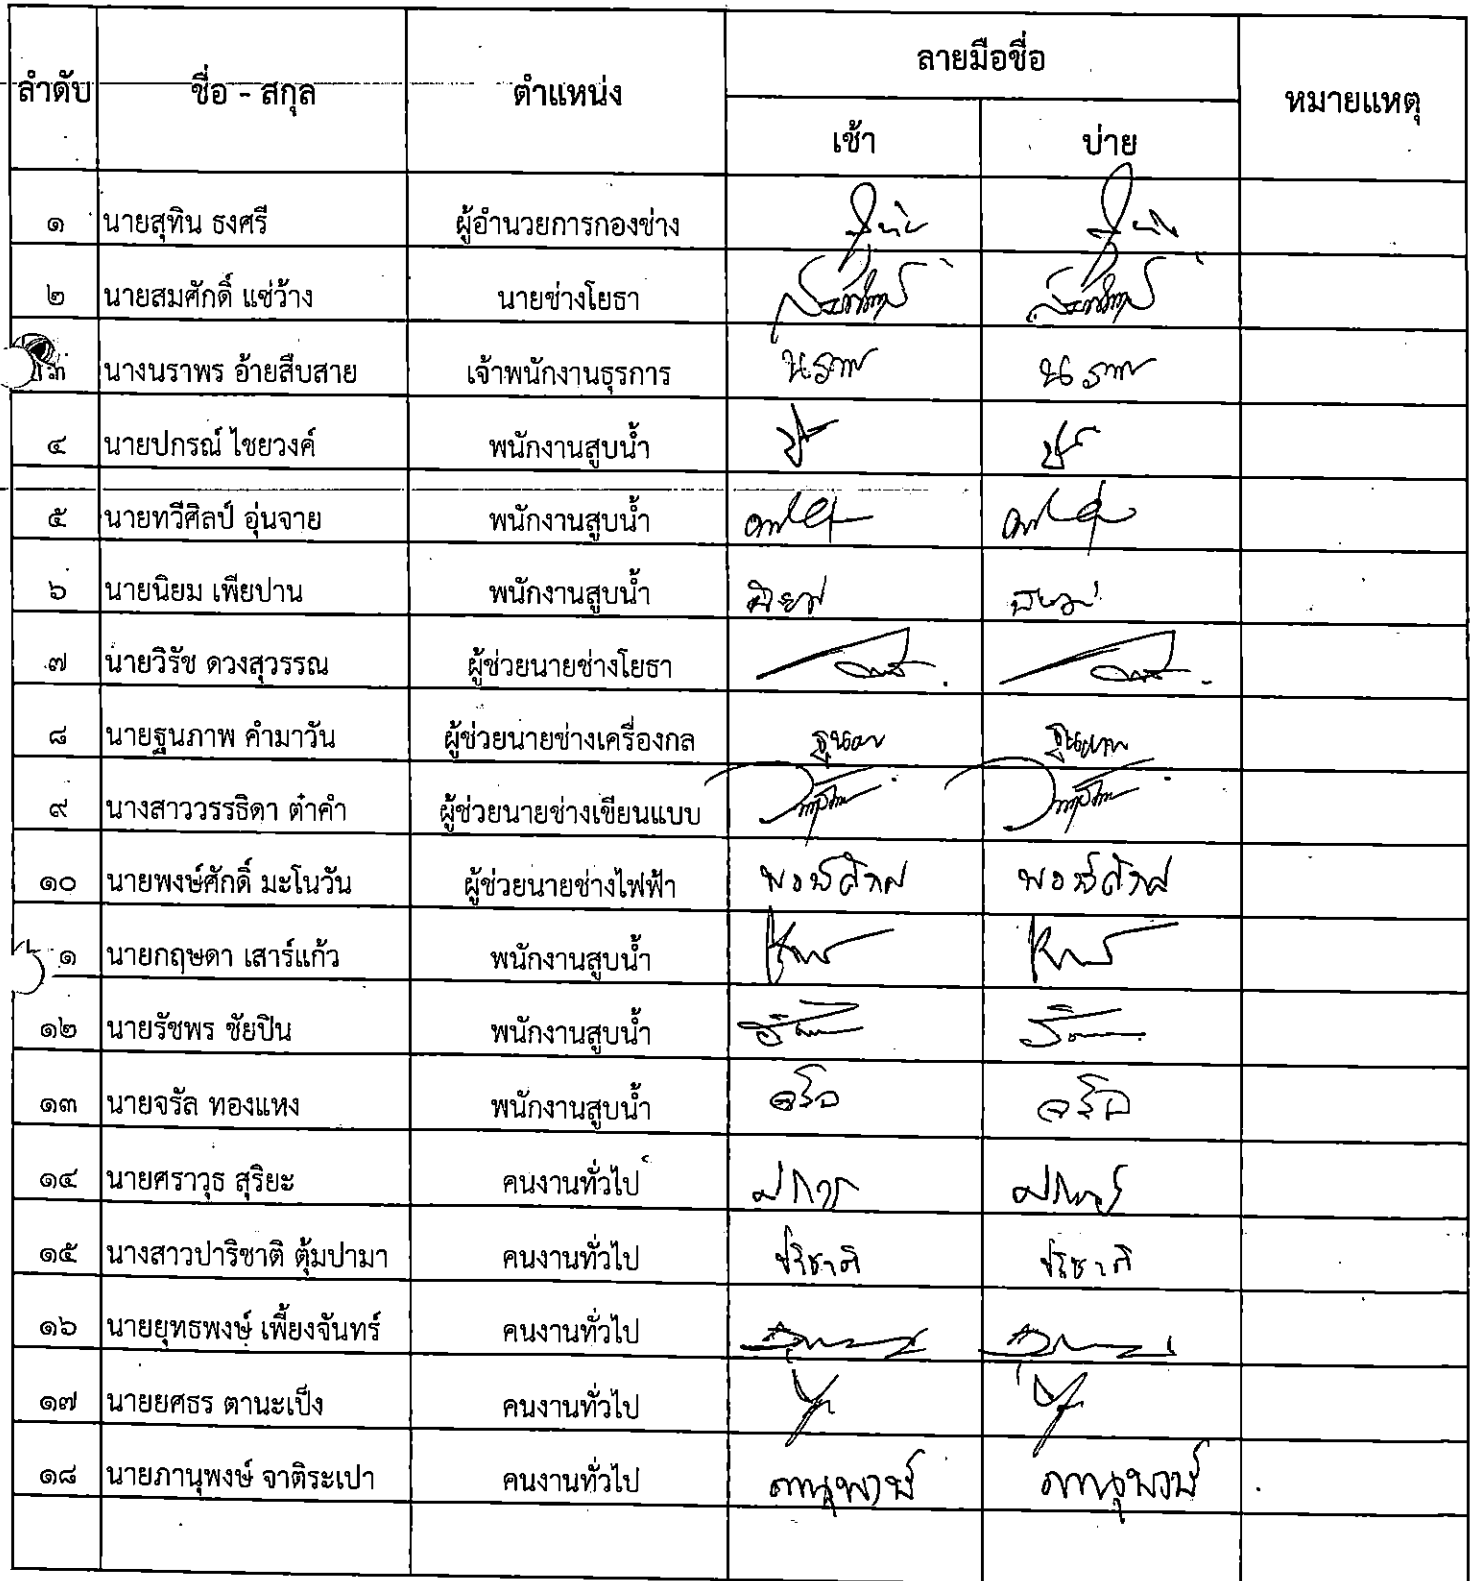 ลำดับ ชื่อ - สกุล ตำแหน่ง ลายมือชื่อ หมายเหตุ
เช้า บ่าย
๑ นายสุทิน ธงศรี ผู้อำนวยการกองช่าง
๒ นายสมศักดิ์ แซ่ว้าง นายช่างโยธา
๓ นางนราพร อ้ายสืบสาย เจ้าพนักงานธุรการ นราพร นราพร
๔ นายปกรณ์ ไชยวงค์ พนักงานสูบน้ำ
๕ นายทวีศิลป์ อุ่นจาย พนักงานสูบน้ำ
๖ นายนิยม เพียปาน พนักงานสูบน้ำ นิยม นิยม
๗ นายวิรัช ดวงสุวรรณ ผู้ช่วยนายช่างโยธา
๘ นายฐนภาพ คำมาวัน ผู้ช่วยนายช่างเครื่องกล ฐนภาพ ฐนภาพ
๙ นางสาววรรธิดา ต๋าคำ ผู้ช่วยนายช่างเขียนแบบ
๑๐ นายพงษ์ศักดิ์ มะโนวัน ผู้ช่วยนายช่างไฟฟ้า พงษ์ศักดิ์ พงษ์ศักดิ์
๑ นายกฤษดา เสาร์แก้ว พนักงานสูบน้ำ
๑๒ นายรัชพร ชัยปิน พนักงานสูบน้ำ
๑๓ นายจรัล ทองแหง พนักงานสูบน้ำ จรัล จรัล
๑๔ นายศราวุธ สุริยะ คนงานทั่วไป
๑๕ นางสาวปาริชาติ ตุ้มปามา คนงานทั่วไป ปาริชาติ ปาริชาติ
๑๖ นายยุทธพงษ์ เพี้ยงจันทร์ คนงานทั่วไป
๑๗ นายยศธร ตานะเป็ง คนงานทั่วไป
๑๘ นายภานุพงษ์ จาติระเปา คนงานทั่วไป ภานุพงษ์ ภานุพงษ์